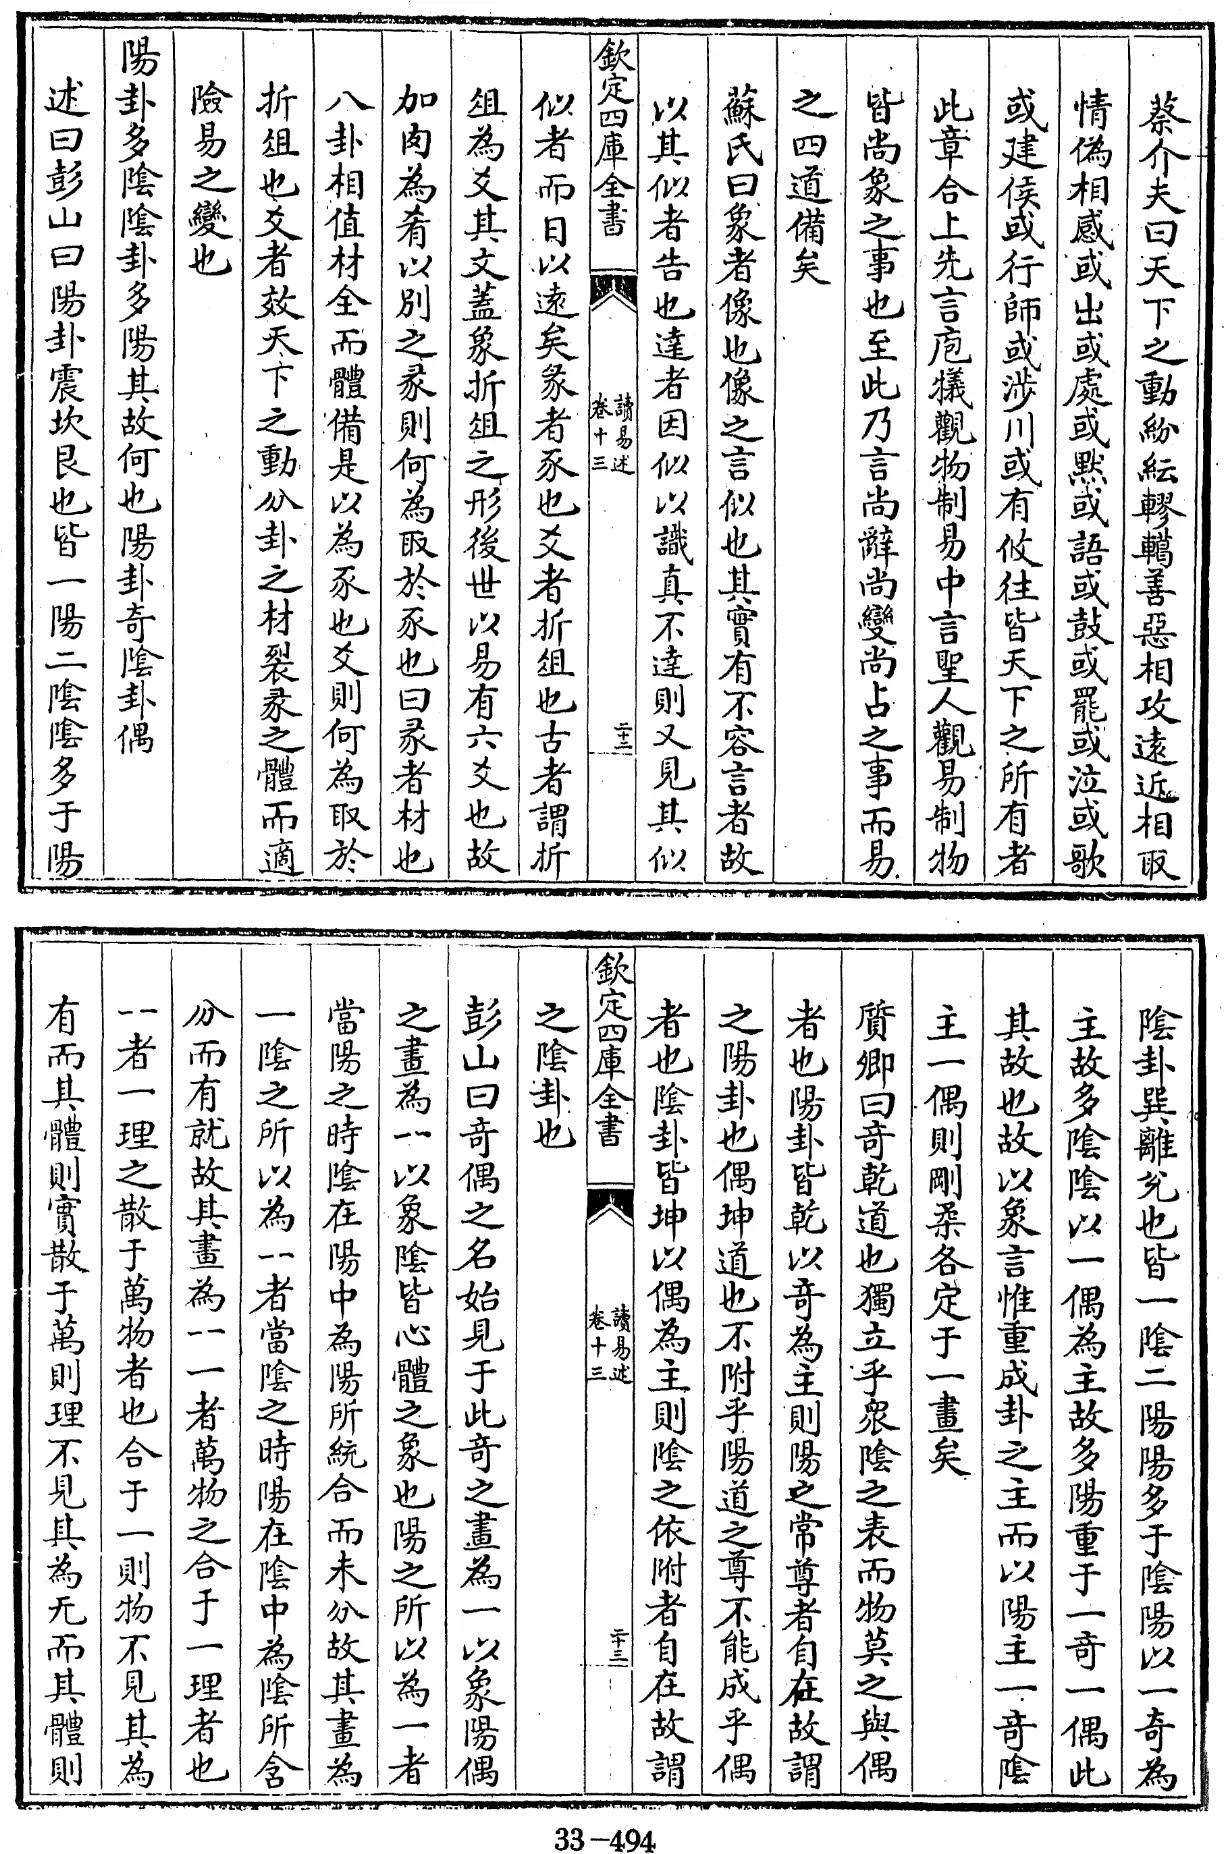 蔡介夫曰天下之動紛紜轇轕善惡相攻遠近相取
情偽相感或出或處或黙或語或鼓或罷或泣或歌
或建侯或行師或涉川或有攸往皆天下之所有者
此章合上先言庖犧觀物制易中言聖人觀易制物
皆尚象之事也至此乃言尚辭尚變尚占之事而易
之四道備矣
蘇氏曰象者像也像之言似也其實有不容言者故
以其似者告也達者因似以識真不達則又見其似
欽定四庫全書
讀易述
卷十三
二十二
似者而日以遠矣彖者豕也爻者折俎也古者謂折
俎為爻其文蓋象折俎之形後世以易有六爻也故
加肉為肴以別之彖則何為取於豕也曰彖者材也
八卦相值材全而體備是以為豕也爻則何為取於
折俎也爻者效天下之動分卦之材裂彖之體而適
險易之變也
陽卦多陰陰卦多陽其故何也陽卦奇陰卦偶
述曰彭山曰陽卦震坎艮也皆一陽二陰陰多于陽
陰卦巽離兌也皆一陰二陽陽多于陰陽以一奇為
主故多陰陰以一偶為主故多陽重于一奇一偶此
其故也故以象言惟重成卦之主而以陽主一奇陰
主一偶則剛柔各定于一畫矣
質卿曰奇乾道也獨立乎衆陰之表而物莫之與偶
者也陽卦皆乾以奇為主則陽之常尊者自在故謂
之陽卦也偶坤道也不附乎陽道之尊不能成乎偶
者也陰卦皆坤以偶為主則陰之依附者自在故謂
欽定四庫全書
讀易述
卷十三
二十三
之陰卦也
彭山曰奇偶之名始見于此奇之畫為一以象陽偶
之畫為⚋以象陰皆心體之象也陽之所以為一者
當陽之時陰在陽中為陽所統合而未分故其畫為
一陰之所以為⚋者當陰之時陽在陰中為陰所含
分而有就故其畫為⚋一者萬物之合于一理者也
⚋者一理之散于萬物者也合于一則物不見其為
有而其體則實散于萬則理不見其為无而其體則
33-494